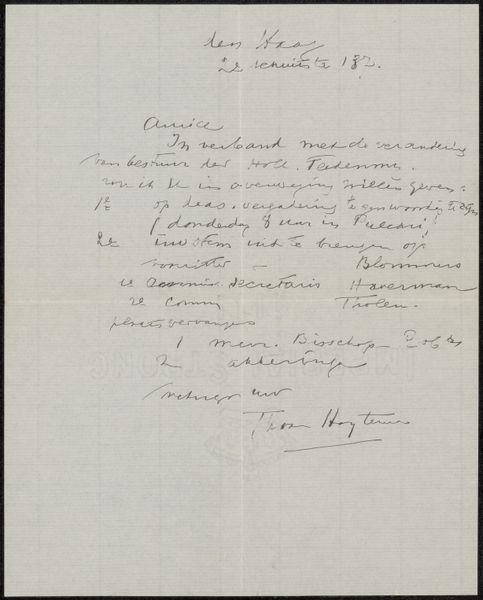 den Haag
2e Schuitstr 182.
Amice
In verband met de verandering
van bestuur der Holl. Teekenmij.
wou ik U in overweging willen geven:
1e op de a.s. vergadering tegenwoordig te zijn
donderdag 8 uur in Pulchri!
2e uw stem uit te brengen op
voorzitter — Blommers
secretaris Haverman
2e comm Tholen.
plaatsvervangers
1 mevr. Bisschop
2 Akkeringa
uw
Th van Hoytema